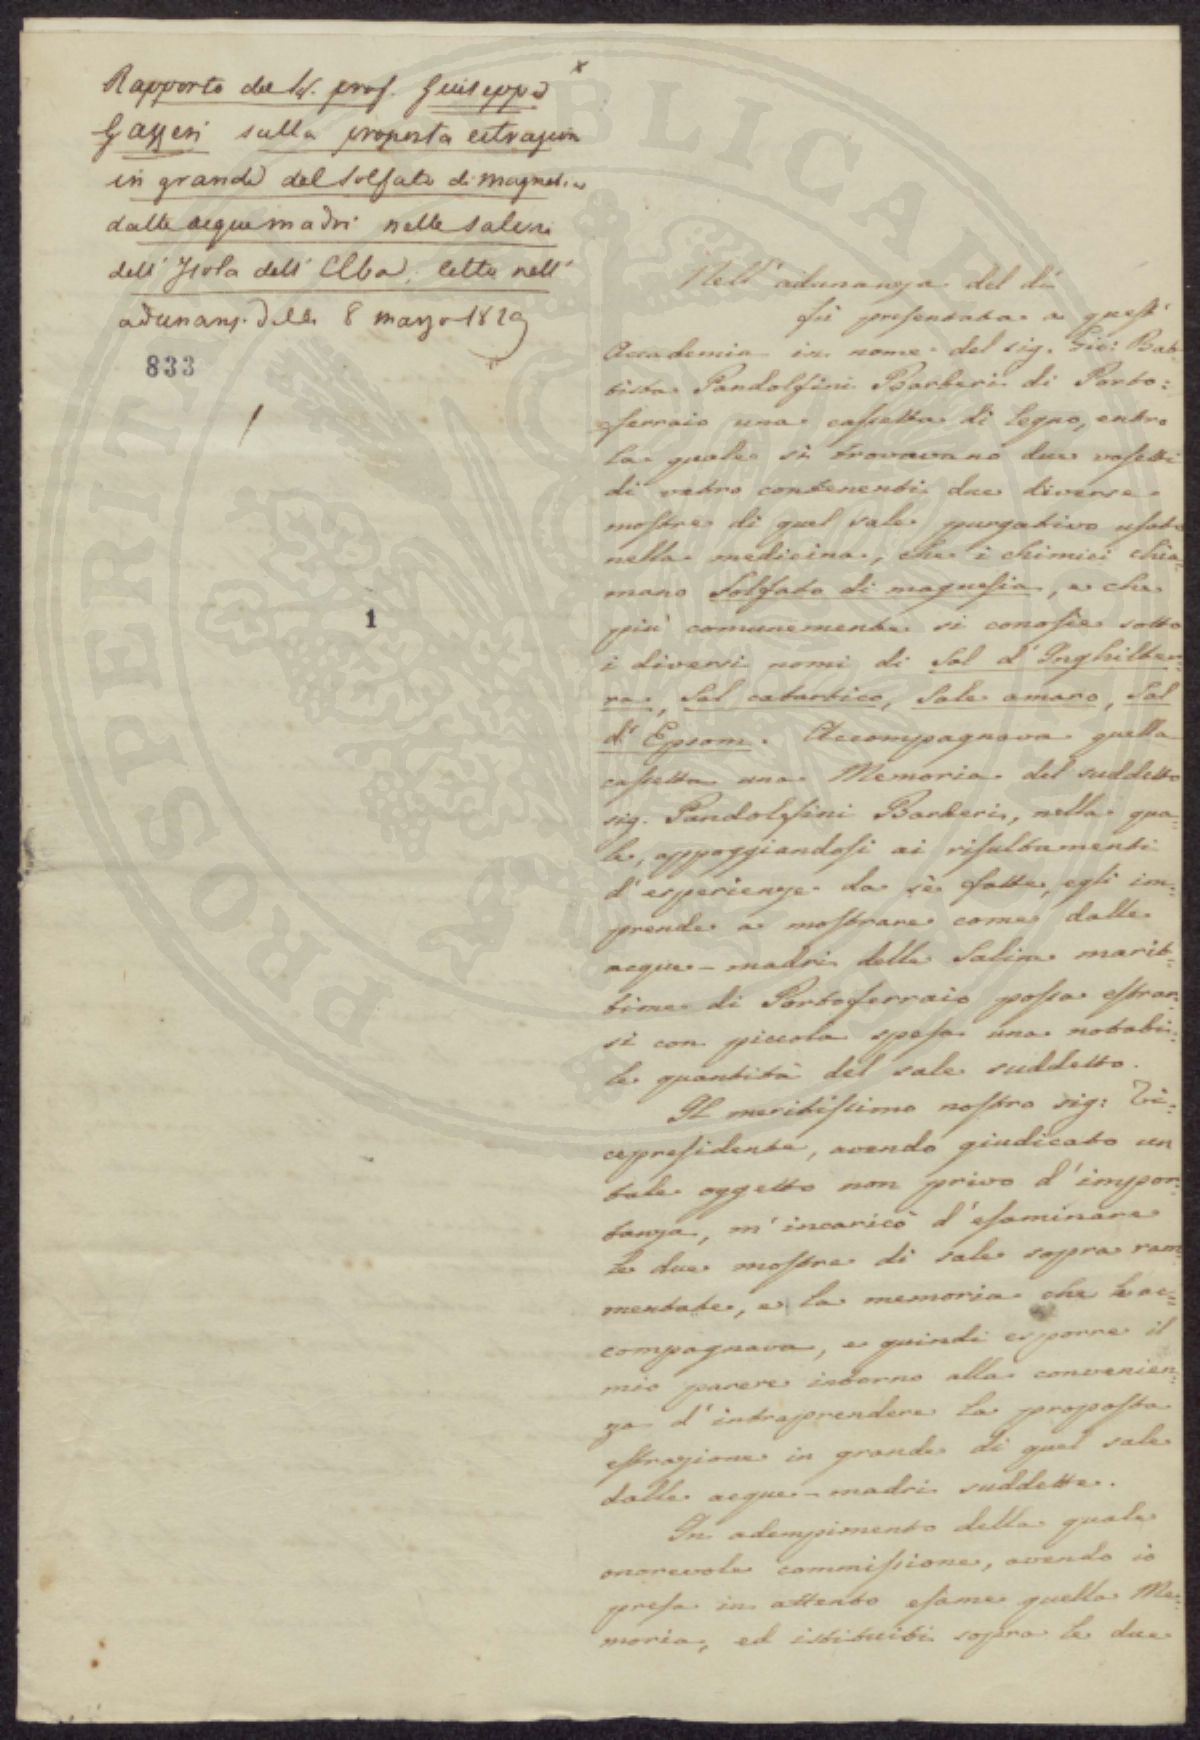 Rapporto del Sig. prof. Giuseppe
Gazzeri sulla proposta estrazione
in grande del solfato di magnesia
dalle acque madri nelle saline
dell' Isola dell' Elba, letto nell'
adunanz. delli 8 marzo 1829
833
1
Nell' adunanza del dì
fù presentata a quest'
Accademia in nome del sig. Gio: Bat-
tista Pandolfini Barberi di Porto=
ferraio una cassetta di legno, entro
la quale si trovavano due vasetti
di vetro contenenti due diverse
mostre di quel sale purgativo usato
nella medicina, che i chimici chia-
mano solfato di magnesia, e che
più comunemente si conosce sotto
i diversi nomi di Sal d'Inghilter-
ra, Sal catartico, Sale amaro, Sal
d'Epsom. Accompagnava quella
cassetta una Memoria del suddetto
sig. Pandolfini Barberi, nella qua-
le, appoggiandosi ai risultamenti
d'esperienze da sè fatte, egli im-
prende a mostrare come dalle
acque-madri delle Saline marit-
time di Portoferraio possa estrar-
si con piccola spesa una notabi-
le quantità del sale suddetto.
Il meritissimo nostro sig: Vi=
cepresidente, avendo giudicato un
tale oggetto non privo d'impor-
tanza, m'incaricò d'esaminare
le due mostre di sale sopra ram-
mentate, e la memoria che le ac=
compagnava, e quindi esporre il
mio parere intorno alla convenien-
za d'intraprendere la proposta
estrazione in grande di quel sale
dalle acque-madri suddette.
In adempimento della quale
onorevole commissione, avendo io
presa in attento esame quella Me-
moria, ed istituiti sopra le due
PROSPERITÀ PUBLICA